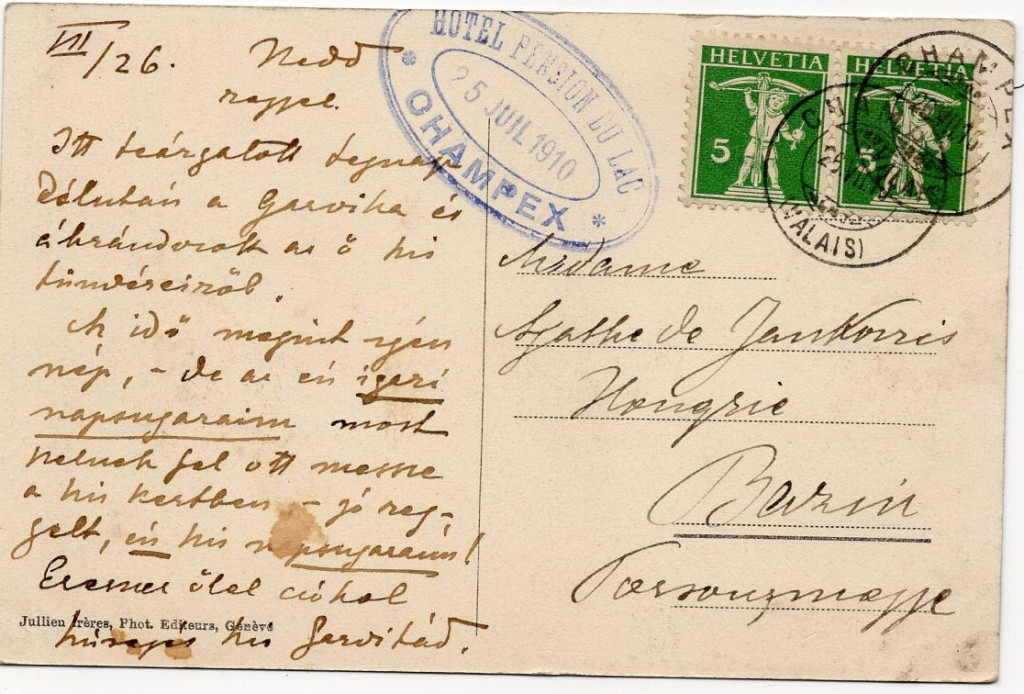 VII/26. Kedd
reggel.
Itt sétálgatott tegnap
délután a Garvika és
ábrándozott az ő kis
tündéreiről.
Az idő megint igen
szép, - de az én igazi
napsugaraim most
kelnek fel ott messze
a kis kertben - jó reg-
gelt, én kis napsugaraim!
Ezerszer ölel csókol
hűséges kis Garvitád.
Jullien frères, Phot. Editeurs, Genève
HOTEL PENSION DU LAC
25 JUIL 1910
CHAMPEX
HELVETIA
5
HELVETIA
5
CHAMPEX
(VALAIS)
Madame
Agathe de Jankovics
Hongrie
Bazin
Pozsonymegye